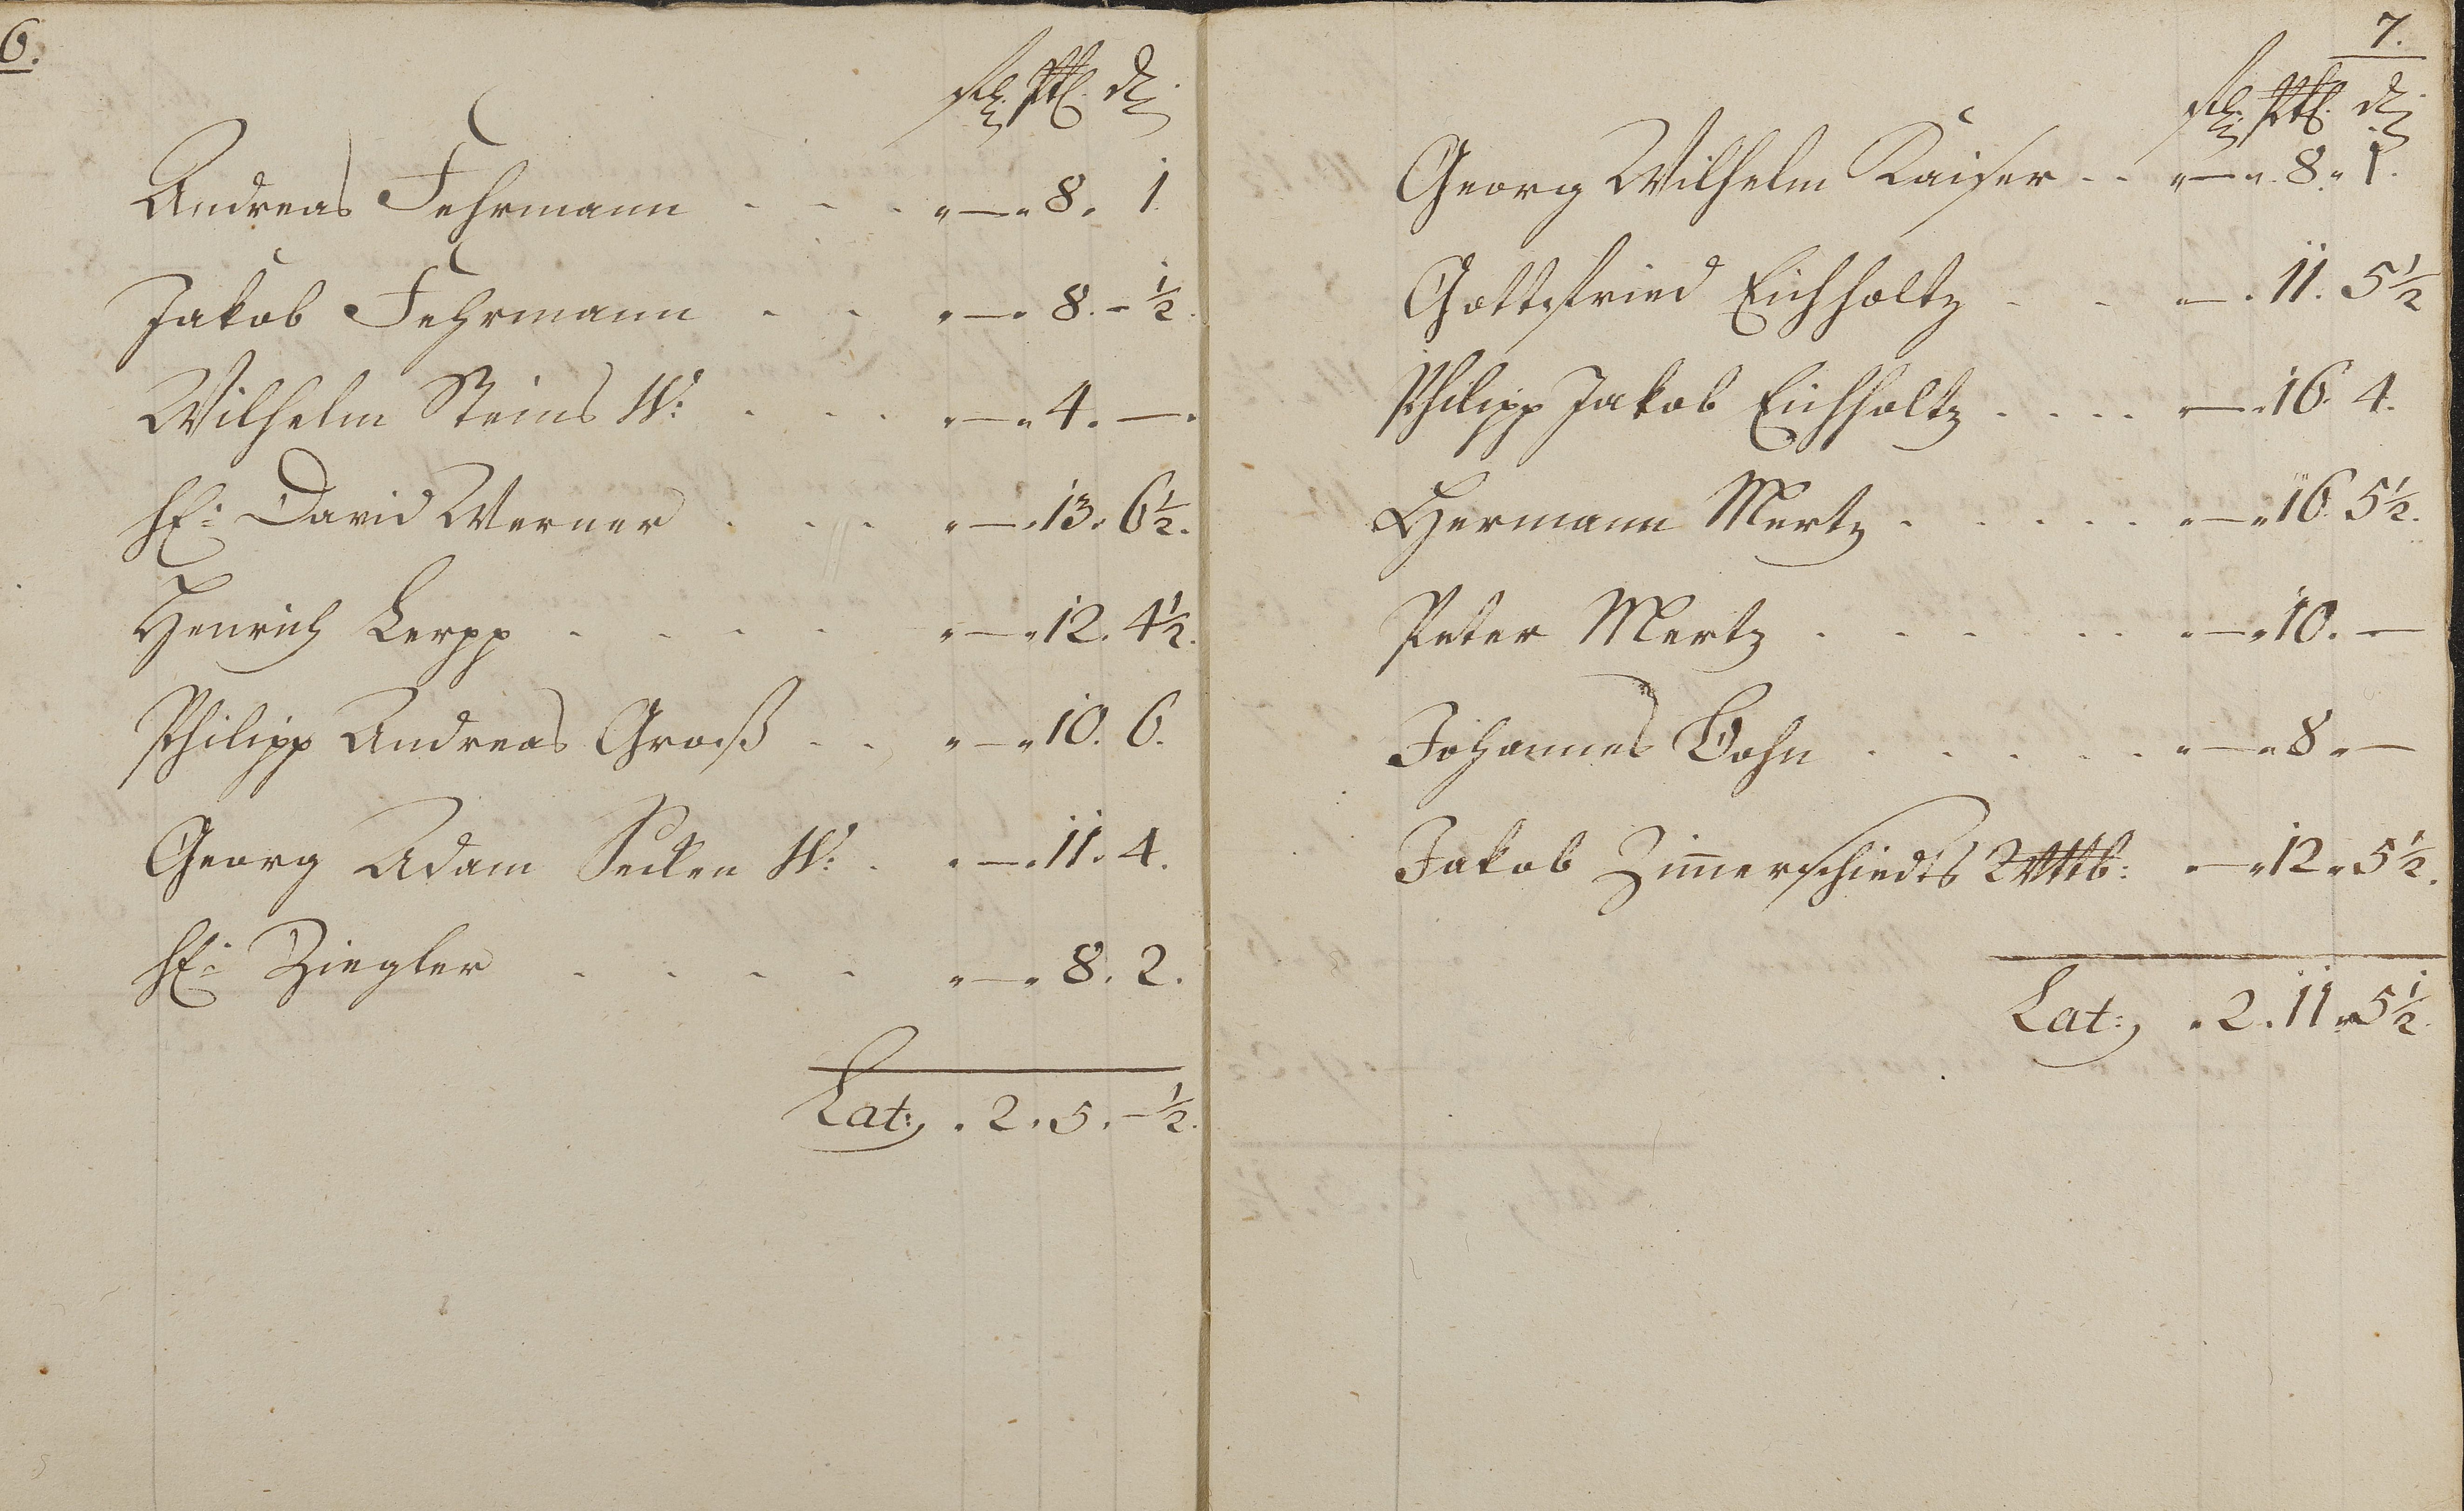 6.
Andreas Fehrmann - - - „—„ 8. 1.
Jakob Fehrmann - - „—„ 8. - ½.
Wilhelm Steins W: - - - „—„ 4. —.
H: David Werner - - - „—„ 13. 6½.
Henrich Lerpp - - - - „—„ 12. 4½.
Philipp Andreas Groß - - „—„ 10. 6.
Georg Adam W: - „—„ 11. 4.
H: Ziegler - - - - „—„ 8. 2.
Lat: . 2. 5. - ½.
7.
Georg Wilhelm Kaiser - - „—„ 8 „ 1.
Gottfried Eichholtz - - „—. 11. 5½
Philipp Jakob Eichholtz - - - - „—„ 16. 4.
Hermann Mertz - - - - - „—„ 16. 5½.
Peter Mertz - - - - - „—„ 10. —
Johannes Bohn - - - - - „—„ 8 „ —
Jakob Zimerschiedts „—„ 12 „ 5½.
Lat: „ 2. 11 „ 5½.